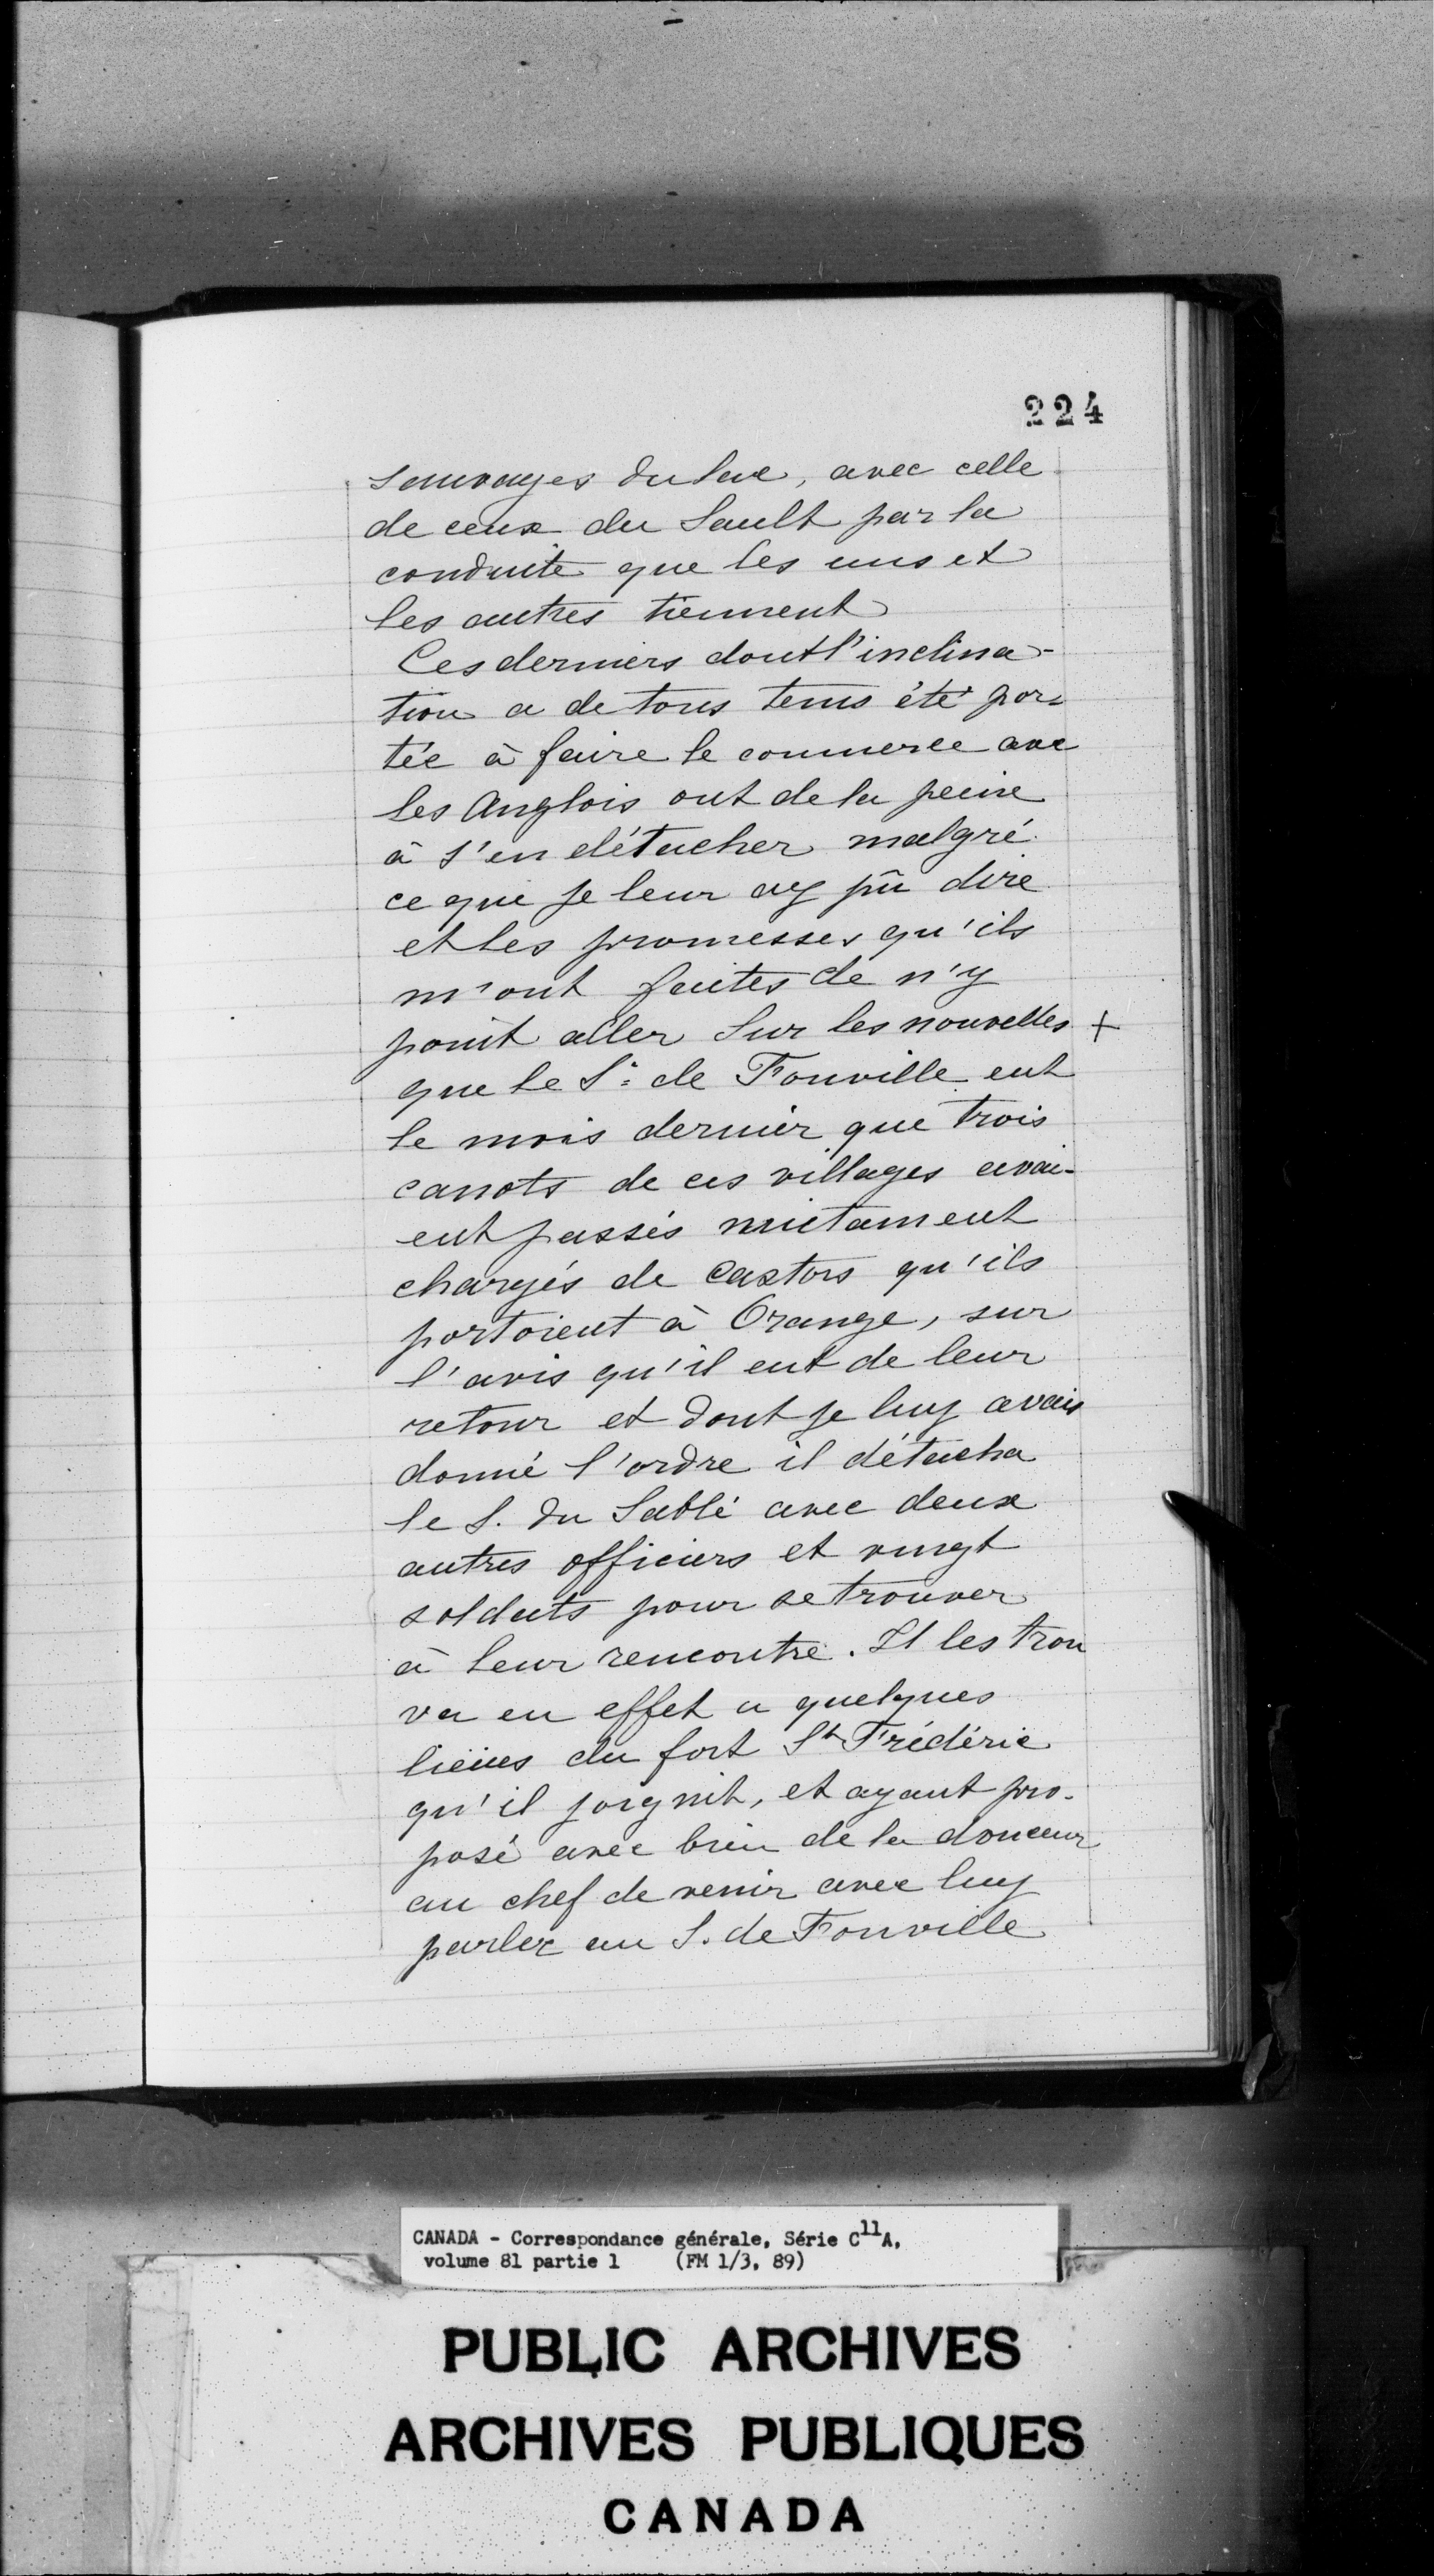 224
sauvages du lac, avec celle
de ceux du Sault par la
conduite que les uns et
les autres tiennent
Ces derniers dont l'inclina-
tion a de tous tems été por-
tée à faire le commerce avec
les Anglois ont de la peine
à s'en détacher malgré
ce que je leur ay pû dire
et les promesses qu'ils
m'ont faites de n'y
point aller Sur les nouvelles +
que le Sr. de Fonville eut
le mois dernier que trois
canots de ces villages avai-
ent passés nuitament
chargés de Castors qu'ils
portoient à Orange, sur
l'avis qu'il eut de leur
retour et dont je luy avais
donné l'ordre il détacha
le S. du Sablé avec deux
autres officiers et vingt
soldats pour se trouver
à leur rencontre. Il les trou
va en effet a quelques
lieües du fort St Frédéric
qu'il joignit, et ayant pro-
posé avec bien de la douceur
au chef de venir avec luy
parler au S. de Fonville
CANADA - Correspondance générale, Série C11A,
volume 81 partie 1 (FM 1/3, 89)
PUBLIC ARCHIVES
ARCHIVES PUBLIQUES
CANADA